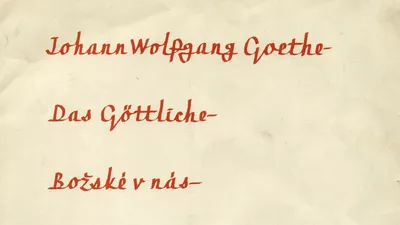 Johann Wolfgang Goethe-
Das Göttliche-
Božské v nás-